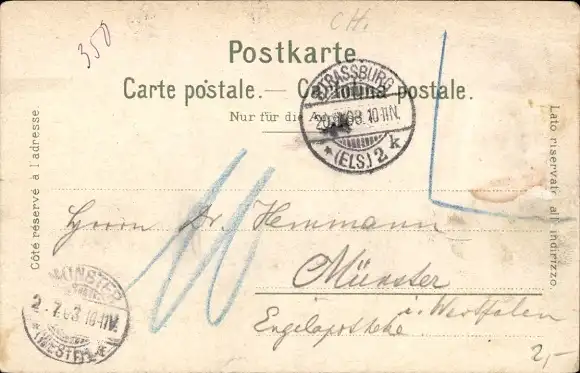 350
CH.
Postkarte
Carte postale. — Cartolina postale.
Nur für die
STRASSBURG
03. 10-11N.
* (ELS.) 2 k
Côté réservé à l'adresse.
Lato riservato all' indirizzo.
Herrn Dr. Hemmann
Münster
i. Westfalen
Engelapotheke
MÜNSTER
2.7.03.10-11V.
* (WESTF.)
2,-